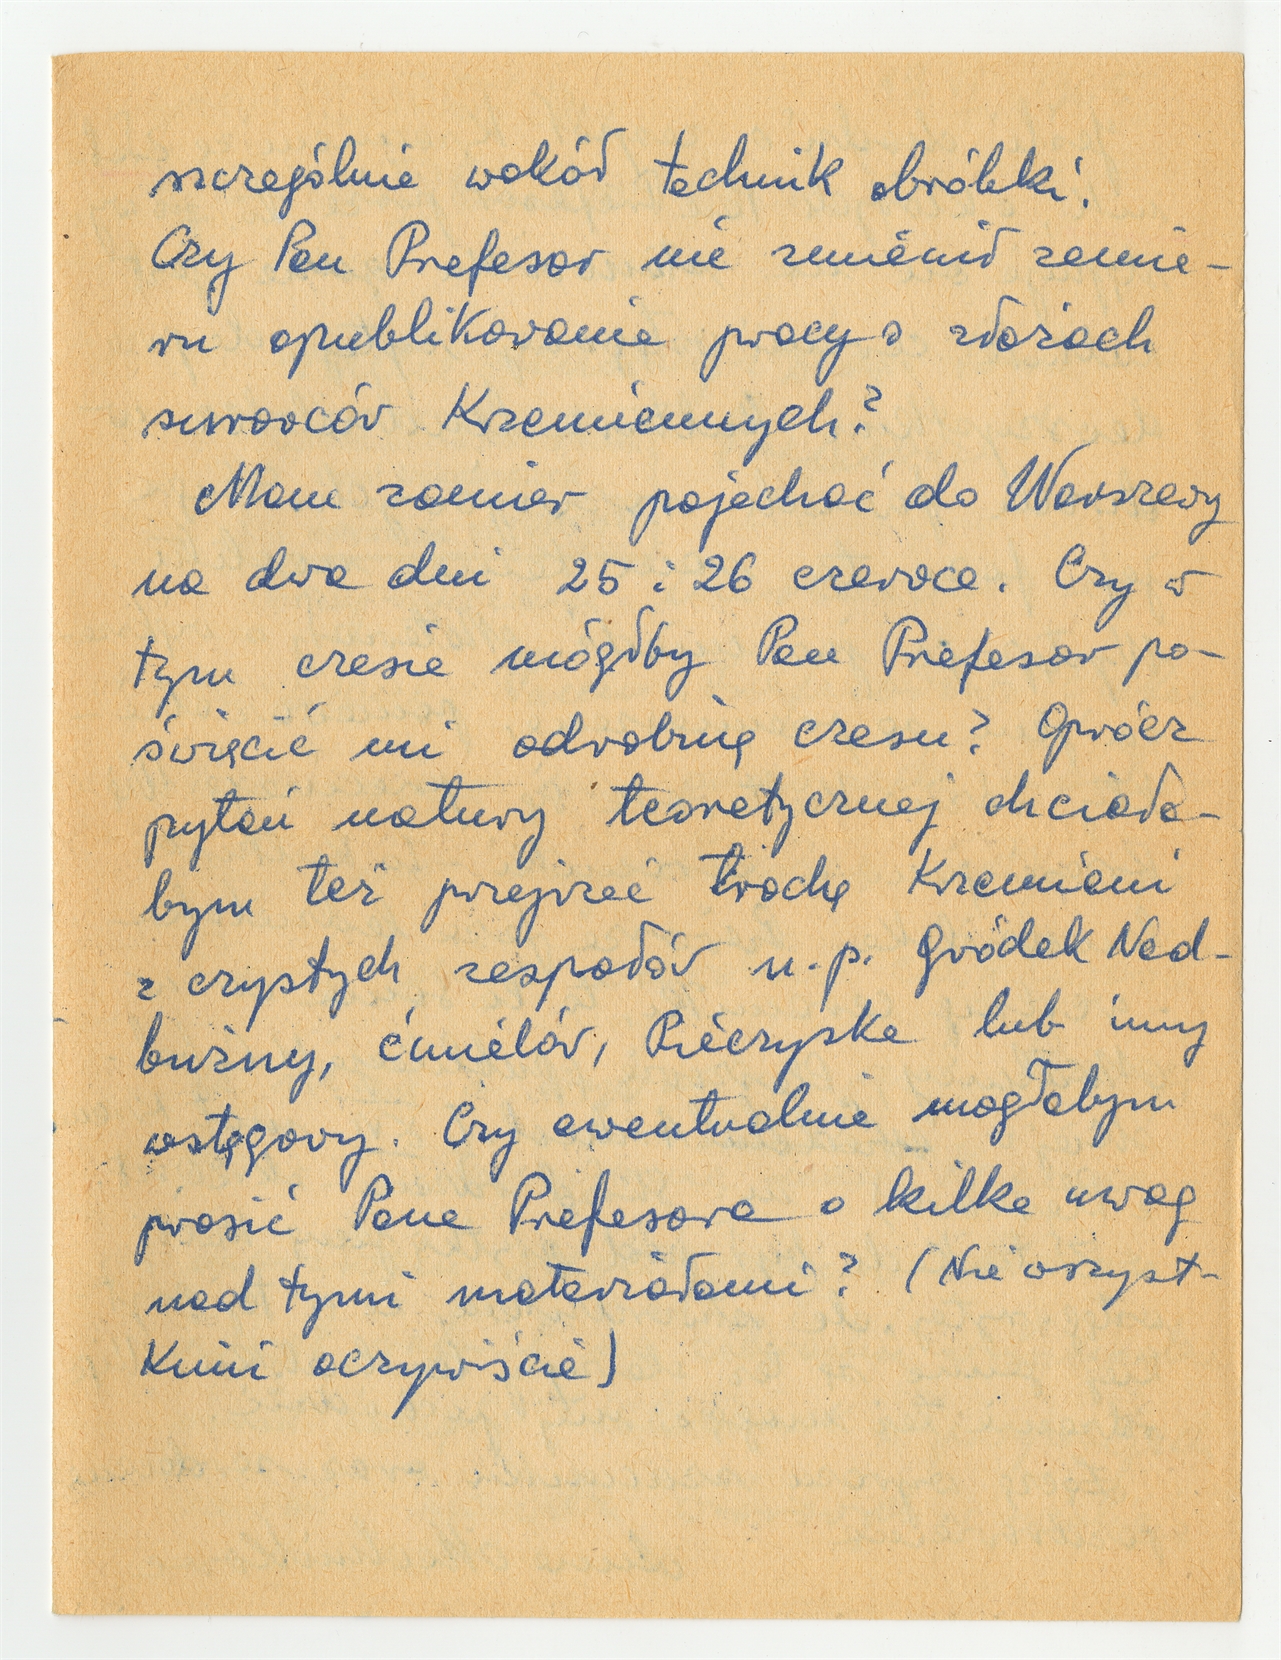 szczególnie wokół technik obróbki.
Czy Pan Profesor nie zmienił zamia-
ru opublikowania pracy o złożach
surowców Krzemiennych?
Mam zamiar pojechać do Warszawy
na dwa dni 25 i 26 czerwca. Czy w
tym czasie mógłby Pan Profesor po-
święcić mi odrobinę czasu? Oprócz
pytań natury teoretycznej chciała-
bym też przejrzeć trochę Krzemieni
z czystych zespołów n.p. Gródek Nad-
bużny, Ćmielów, Pieczyska lub inny
wstęgowy. Czy ewentualnie mogłabym
prosić Pana Profesora o kilka uwag
nad tymi materiałami? (Nie wszyst-
Kimi oczywiście)